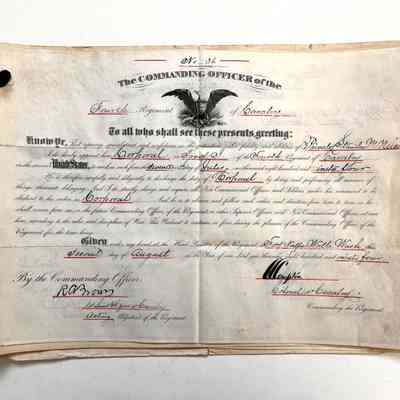 No. 36
The COMMANDING OFFICER of the
Fourth Regiment of Cavalry
To all who shall see these presents greeting:
Know Ye, That reposing special trust and confidence in the fidelity and abilities of Private
I do hereby appoint him Corporal in Troop of the Fourth Regiment of Cavalry
United States day of
He is therefore carefully and diligently to discharge the duty of Corporal by doing and performing all manner of
things thereunto belonging. And I do strictly charge and require all Non-Commissioned Officers and Soldiers under his command to be
obedient to his orders as Corporal And he is to observe and follow such orders and directions from time to time, as he
shall receive from me or the future Commanding Officer of the Regiment or other Superior Officers and Non-Commissioned Officers
set over him, according to the rules and discipline of War. This Warrant to continue in force during the pleasure of the Commanding Officer of the
Regiment for the time being.
Given under my hand at the Head Quarters of the Regiment at Fort Walla Walla Wash. this
Second day of August in the Year of our Lord one thousand eight hundred and ninety four
By the Commanding Officer
R A Brown
Cavalry
Acting Adjutant of the Regiment.
Compton
Colonel 4th Cavalry
Commanding the Regiment.